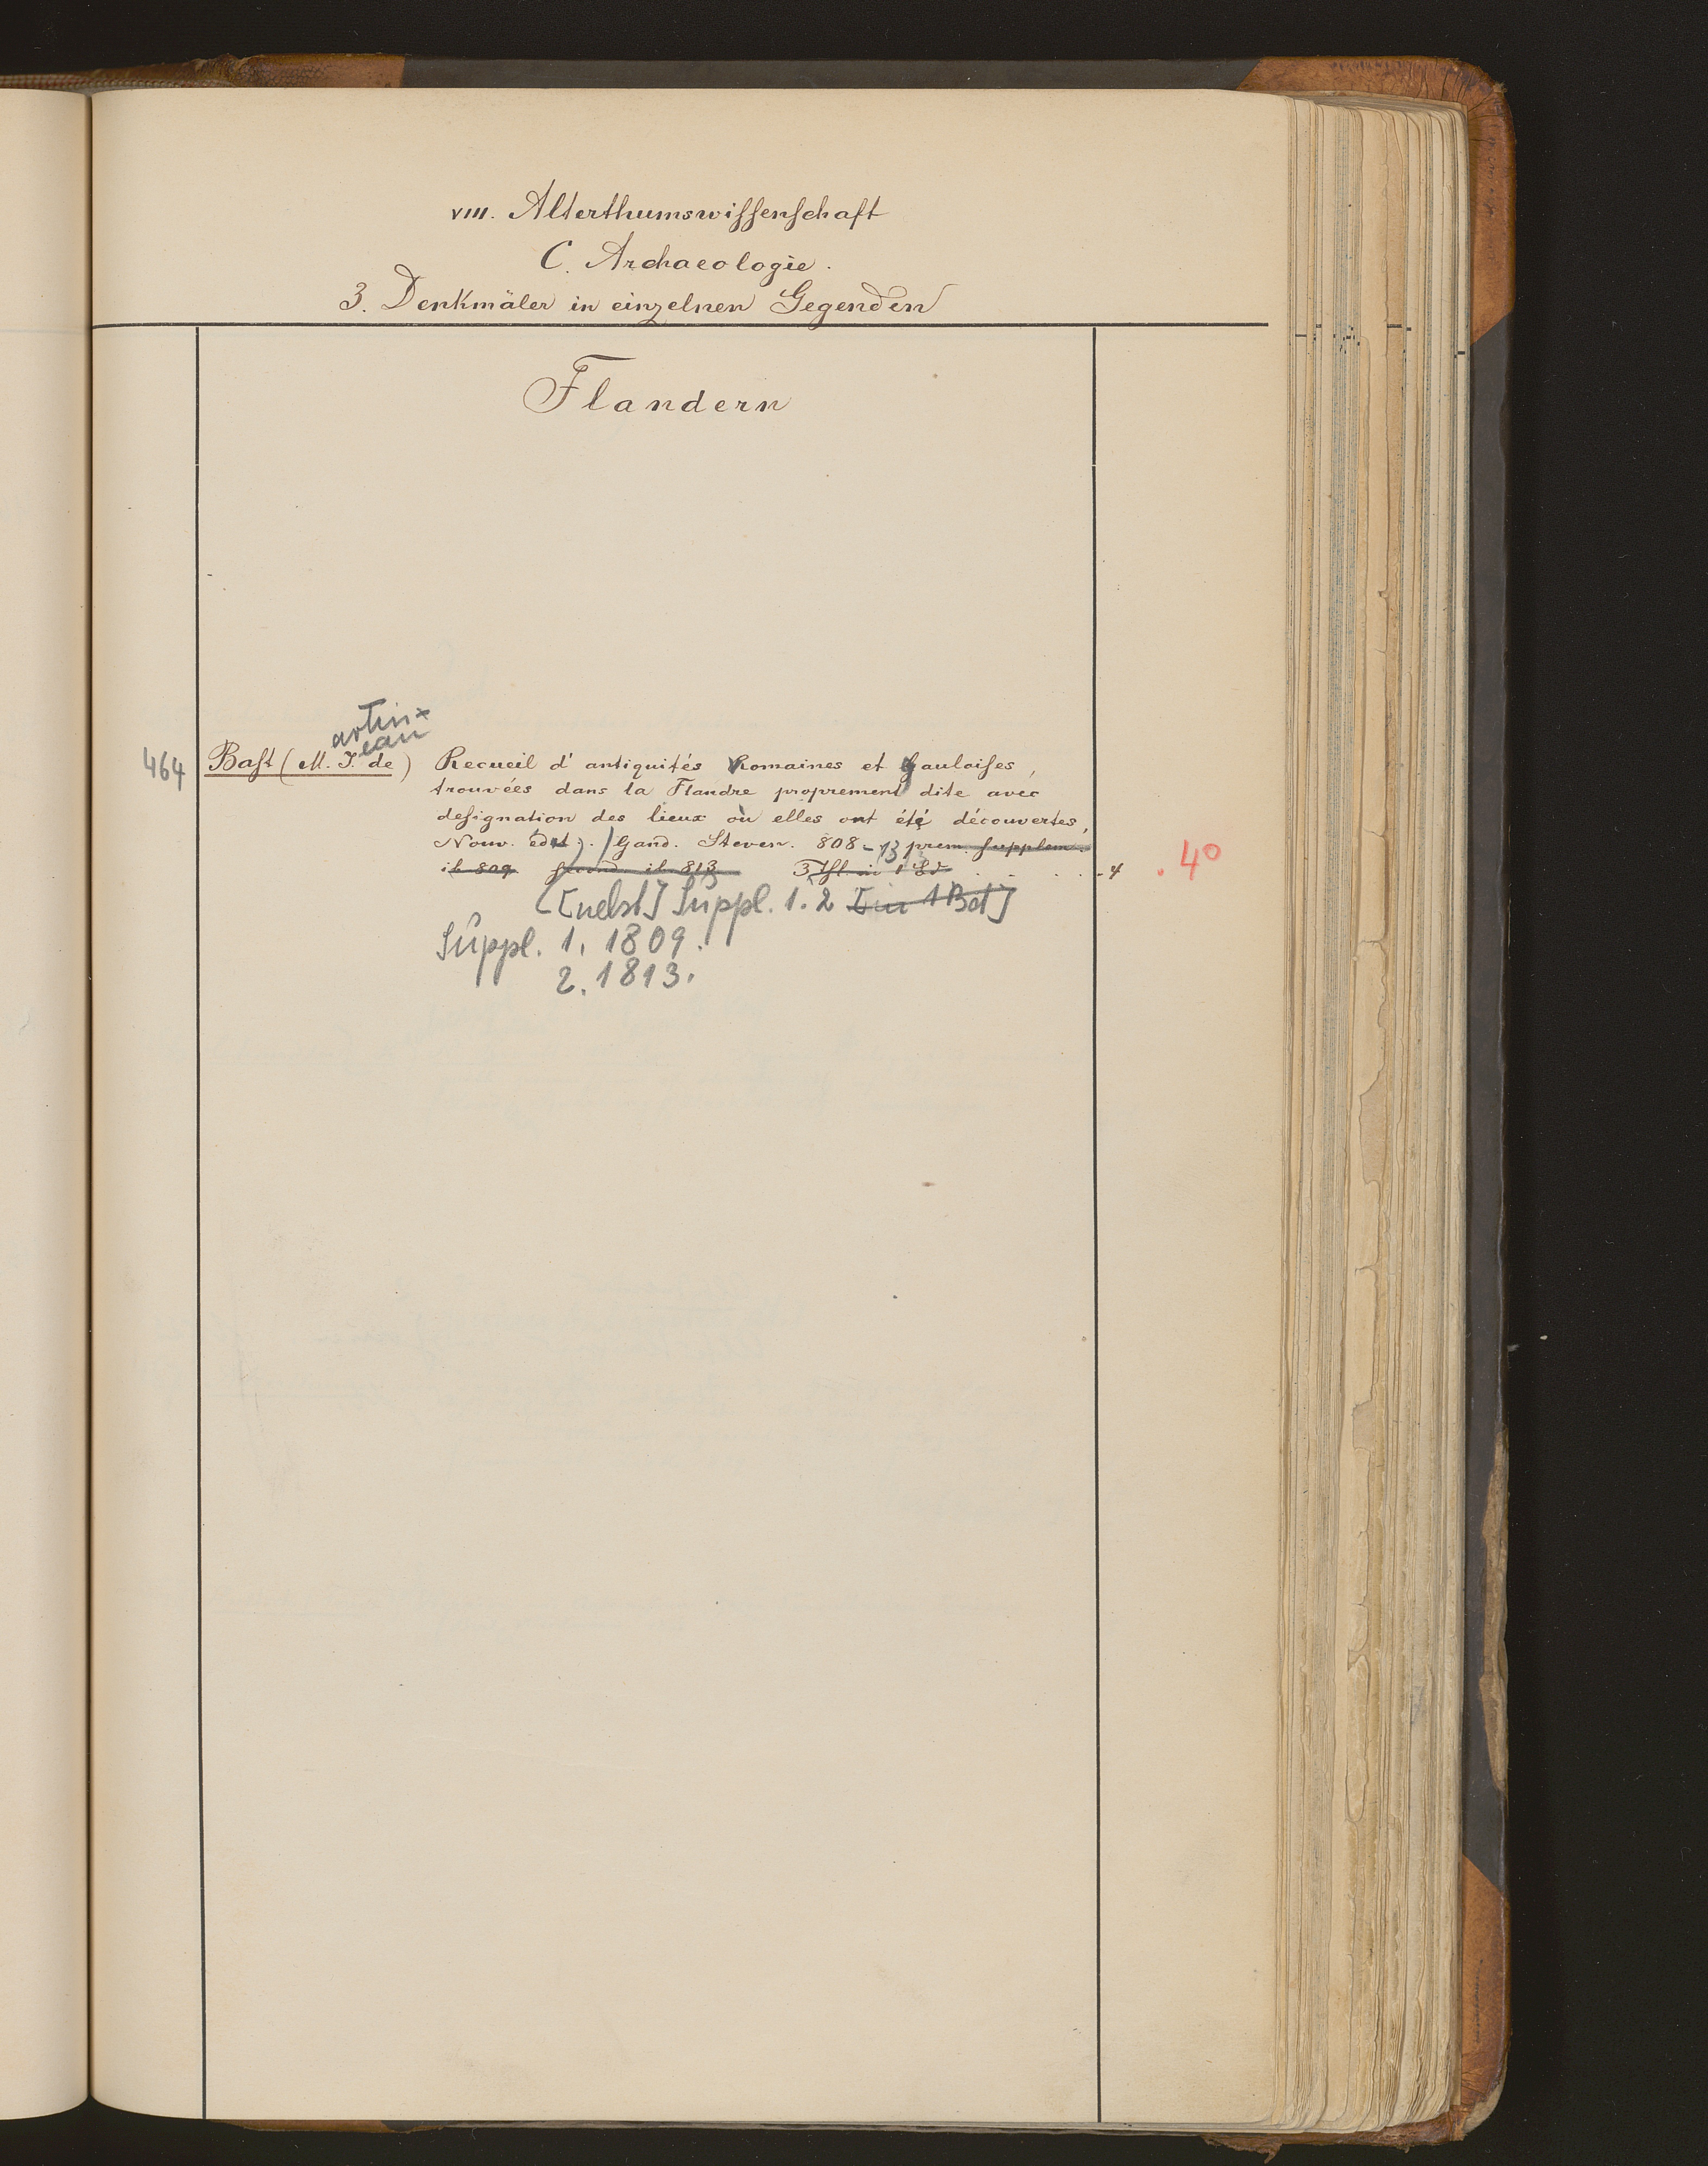 VIII. Alterthumswiſſenſchaft
C. Archaeologie.
3. Denkmäler in einzelnen Gegenden
Flandern
artin=
ean
464 Baſt (M. J. de) Recueil d'antiquités Romaines et Gauloiſes,
trouvées dans la Flandre proprement dite avec
deſignation des lieux où elles ont été découvertes,
Nouv. édit. Gand. Steven. 808-13 prem. ſupplem.
ib 809 ſecond. ib. 813 3 Thl in 1 Bd . . . . 4 . 4°
[nebst] Suppl. 1. 2 [in 1 Bd]
Suppl. 1. 1809.
2. 1813.